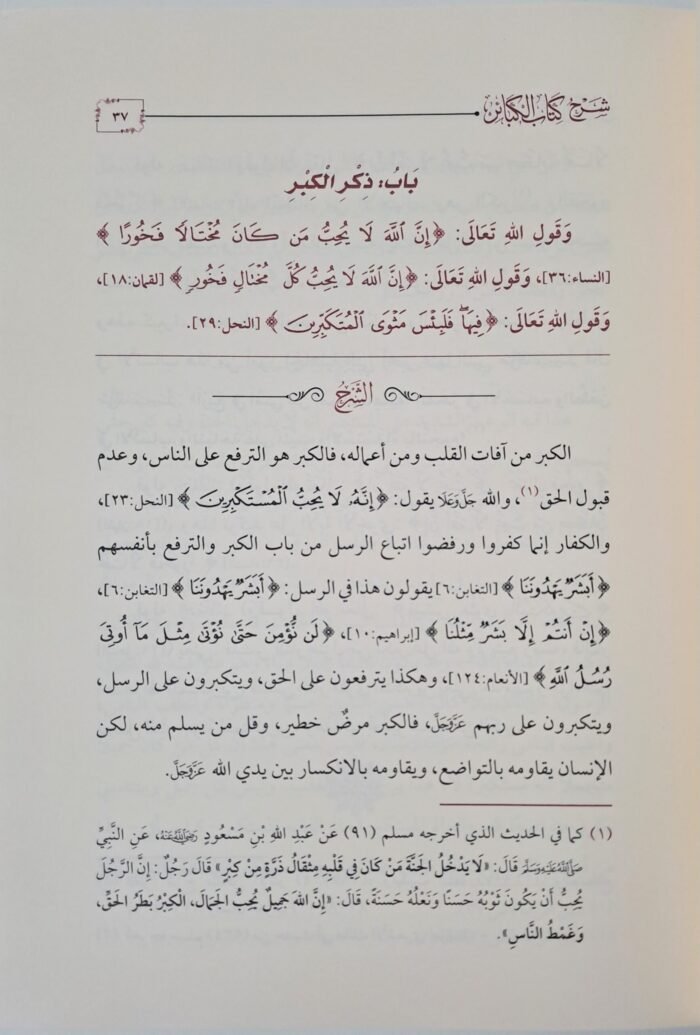 شرح كتاب الكبائر
٣٧
بَابُ: ذِكْرِ الْكِبْرِ
وَقَولِ اللهِ تَعَالَى: ﴿إِنَّ ٱللَّهَ لَا يُحِبُّ مَن كَانَ مُخْتَالًا فَخُورًا﴾
[النساء:٣٦]، وَقَولِ اللهِ تَعَالَى: ﴿إِنَّ ٱللَّهَ لَا يُحِبُّ كُلَّ مُخْتَالٍ فَخُورٍ﴾ [لقمان:١٨]،
وَقَولِ اللهِ تَعَالَى: ﴿فِيهَا فَلَبِئْسَ مَثْوَى ٱلْمُتَكَبِّرِينَ﴾ [النحل:٢٩].
الشَّرْحُ
الكبر من آفات القلب ومن أعماله، فالكبر هو الترفع على الناس، وعدم
قبول الحق(١)، والله جَلَّ وَعَلَا يقول: ﴿إِنَّهُۥ لَا يُحِبُّ ٱلْمُسْتَكْبِرِينَ﴾ [النحل:٢٣]،
والكفار إنما كفروا ورفضوا اتباع الرسل من باب الكبر والترفع بأنفسهم
﴿أَبَشَرٌ يَهْدُونَنَا﴾ [التغابن:٦] يقولون هذا في الرسل: ﴿أَبَشَرٌ يَهْدُونَنَا﴾ [التغابن:٦]،
﴿إِنْ أَنتُمْ إِلَّا بَشَرٌ مِّثْلُنَا﴾ [إبراهيم:١٠]، ﴿لَن نُّؤْمِنَ حَتَّىٰ نُؤْتَىٰ مِثْلَ مَآ أُوتِىَ
رُسُلُ ٱللَّهِ﴾ [الأنعام:١٢٤]، وهكذا يترفعون على الحق، ويتكبرون على الرسل،
ويتكبرون على ربهم عَزَّوَجَلَّ، فالكبر مرضٌ خطير، وقل من يسلم منه، لكن
الإنسان يقاومه بالتواضع، ويقاومه بالانكسار بين يدي الله عَزَّوَجَلَّ.
(١) كما في الحديث الذي أخرجه مسلم (٩١) عَنْ عَبْدِ اللهِ بْنِ مَسْعُودٍ رَضِيَ اللَّهُ عَنْهُ، عَنِ النَّبِيِّ
صَلَّى اللَّهُ عَلَيْهِ وَسَلَّمَ قَالَ: «لَا يَدْخُلُ الْجَنَّةَ مَنْ كَانَ فِي قَلْبِهِ مِثْقَالُ ذَرَّةٍ مِنْ كِبْرٍ» قَالَ رَجُلٌ: إِنَّ الرَّجُلَ
يُحِبُّ أَنْ يَكُونَ ثَوْبُهُ حَسَنًا وَنَعْلُهُ حَسَنَةً، قَالَ: «إِنَّ اللهَ جَمِيلٌ يُحِبُّ الْجَمَالَ، الْكِبْرُ بَطَرُ الْحَقِّ،
وَغَمْطُ النَّاسِ».